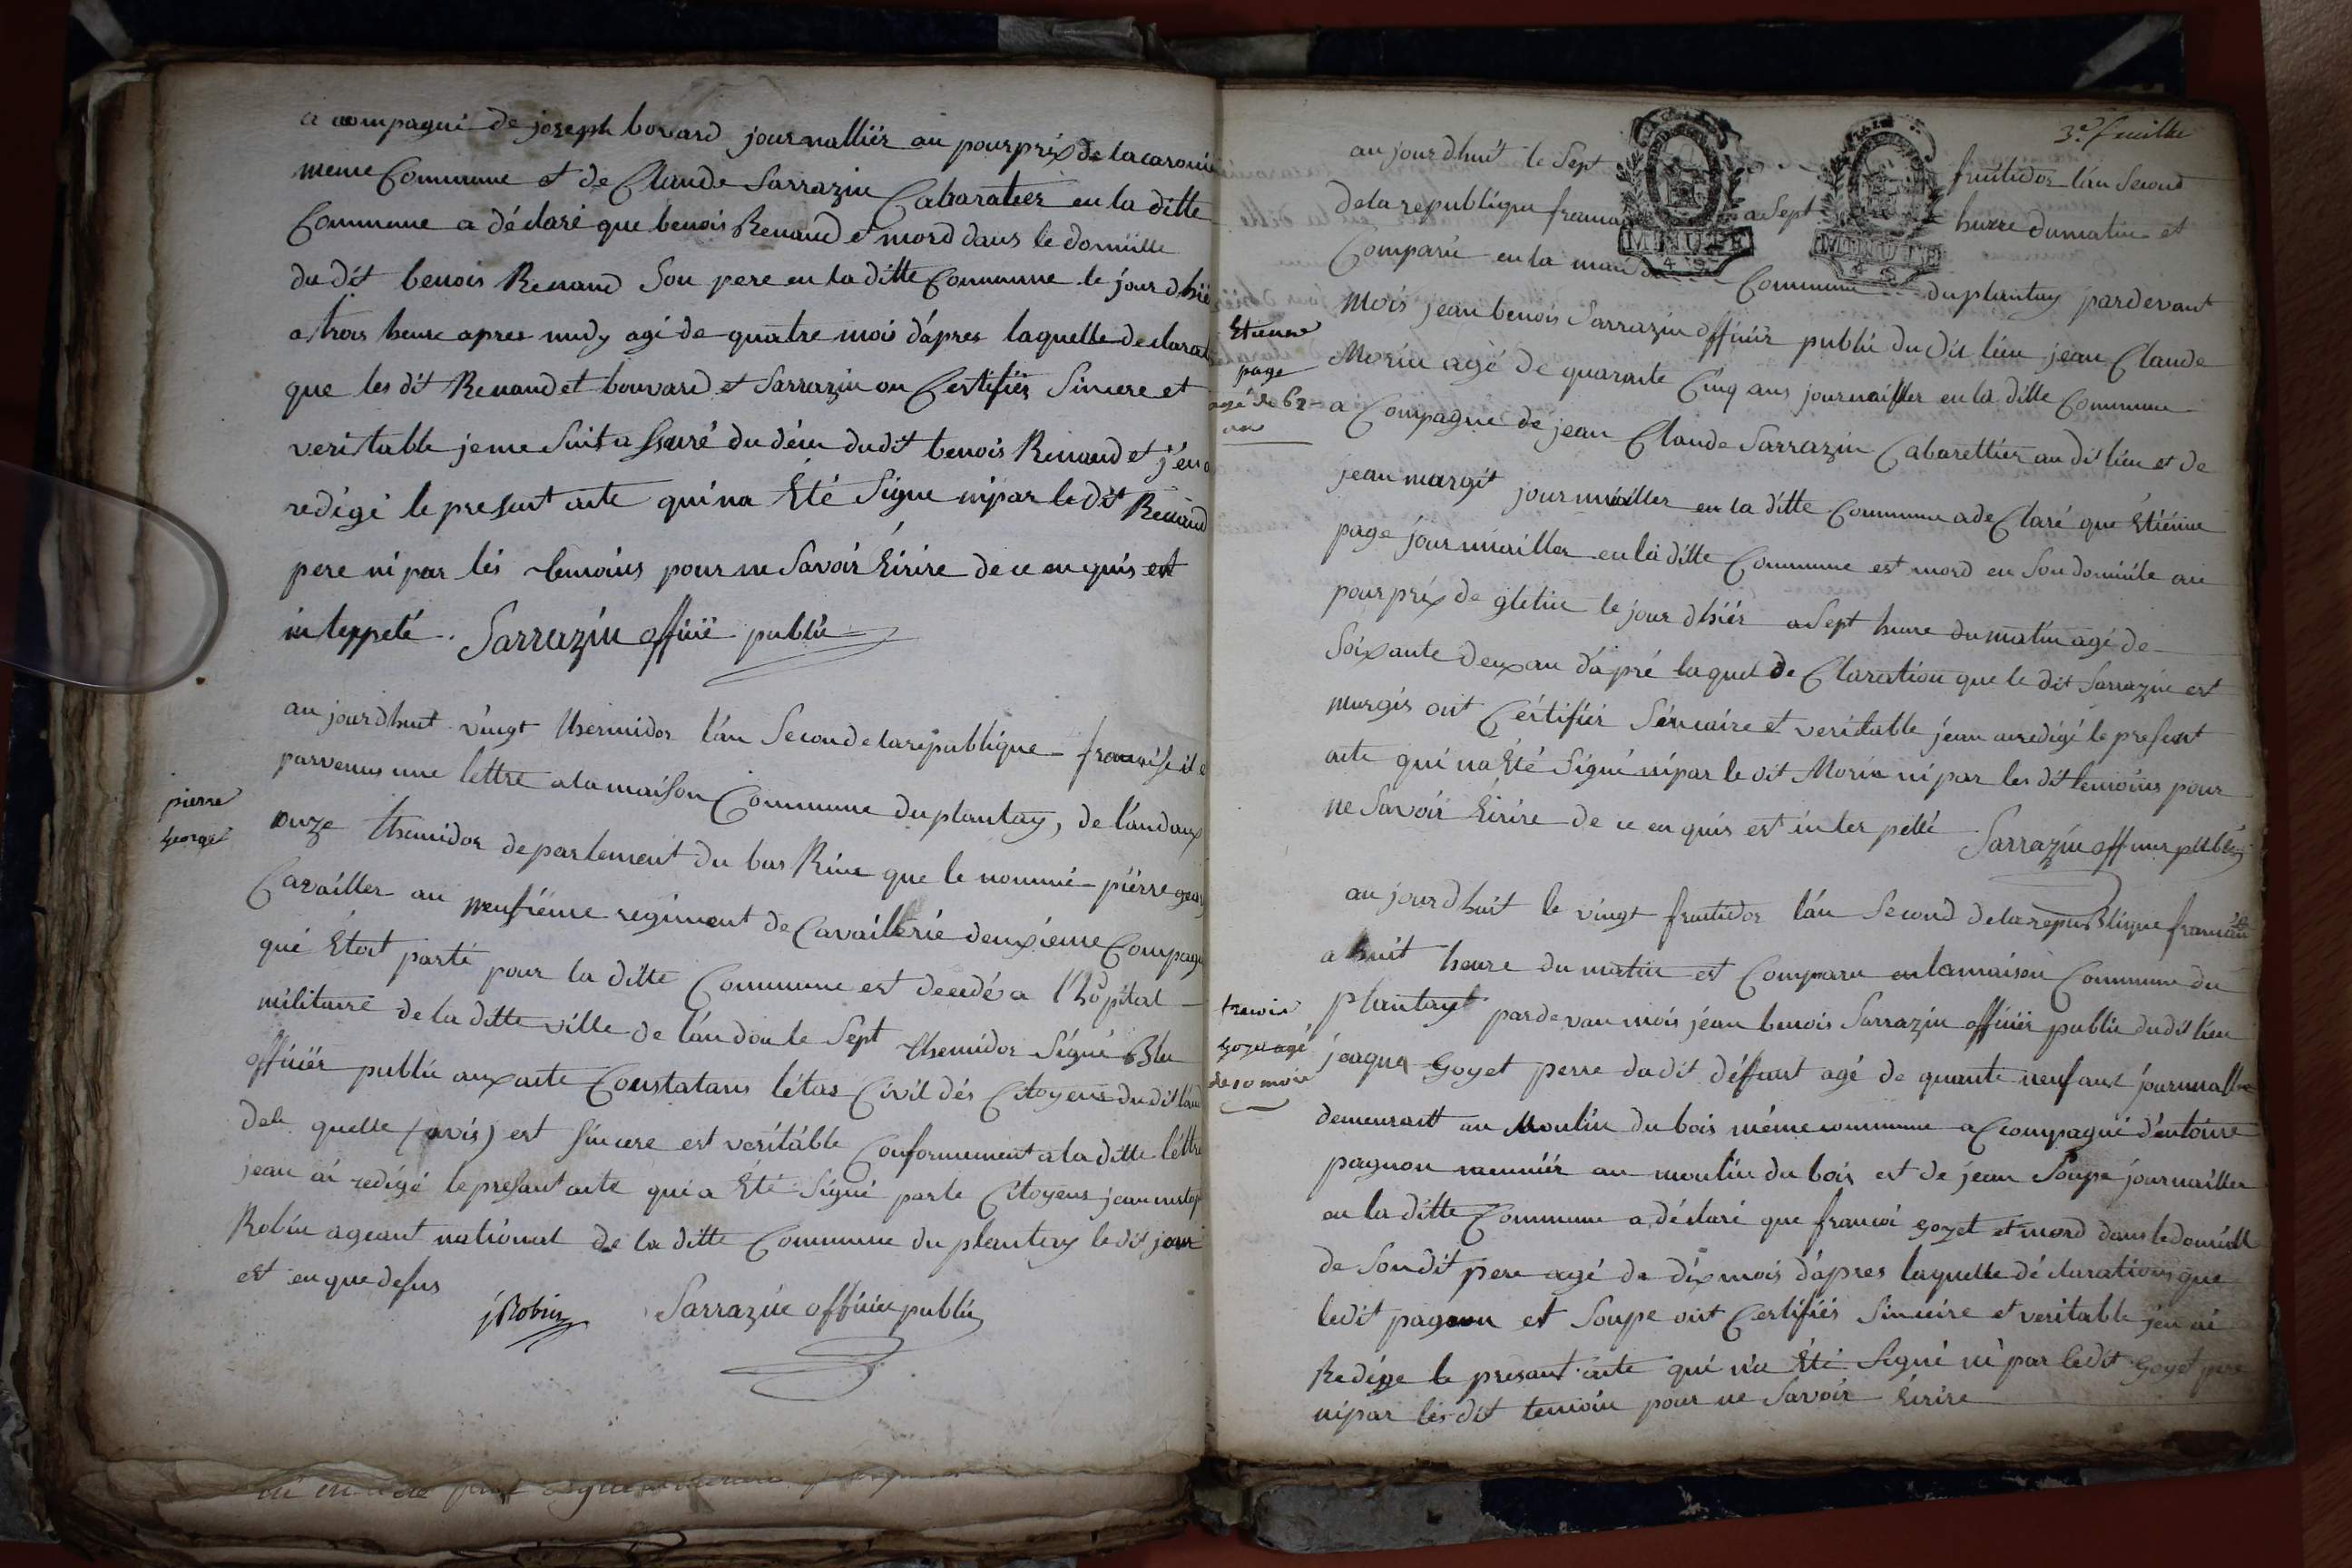 a compagné de joseph bovard journalliér au pourprix de lacaroni
meme Commune et de Claude Sarrazin Cabaratier en la ditte
Commune a déclaré que benois Renaud et mord dans le domiille
du dit benois Renaud Son pere en la ditte Commune le jour d'hié
a trois heure apres midy agé de quatre mois d'apres laquelle declarat
que les dit Renaud et bouvard et Sarrazin on Certifiér Sincere et
veritable je me Suit assuré du déces dudit benois Renaud et j'en a
redigé le present acte qui na Eté Signe ni par le dit Renaud
pere ni par lés temoins pour ne Savoir Ecrire de ce enquis et
inteppelé. Sarrazin officié publié
au jourdhuit vingt thermidor l'an Second de la republique francaise il e
parvenus une lettre a la maison Commune du plantay, de landaux
pierre
george
onze themidor departement du bas Rine que le nommé pierre geor
Cavailler au neufiéme regiment de Cavaillerie deuxieme Compagn
qui Etoit parti pour la ditte Commune est decedé a l'hopital
militaire de la ditte ville de landou le Sept themidor Signé Blu
officiér publié aux acte Constatans l'etat Civil dés Citoyens du dit land
dela quelle (avis) est sincere est veritable Conformement a la ditte lettre
jean ai redigé le present acte qui a Eté Signé parle Citoyens jean
Robin ageant national de la ditte Commune du plantay le dit jour
est en que desus
jRobin Sarrazin officier publié
3e. feuille
au jour dhuit le Sept fructidor l'an Second
de la republique franca a Sept heure du matin et
Comparu en la mai Commune du plantay pardevant
Mois jean benois Sarrazin officiér publié du dit lieu jean Claude
Etienne
page
agé de 62
ans
Morin agé de quarante Cinq ans journaillier en la ditte Commune
a Compagné de jean Claude Sarrazin Cabarettiér au dit lieu et de
jean margit journaillier en la ditte Commune a de Claré que Etiénne
page journaillier en la ditte Commune est mord en Son domicile au
pour prix de gletin le jour d'hiér a Sept heure du matin agé de
Soixante deux an d'apré laquel de Claration que le dit Sarrazin est
murgis ont Cértifiér Sincaire et veritable jean ai redigé le present
acte qui na Eté Signé ni par le dit Morin ni par les dit temoins pour
ne Savoir Ecrire de ce en quis est inter pellé Sarrazin officier publié
au jour d huit le vingt fructidor l'an Second de la republique francai
a huit heure du matin est Comparu en la maison Commune du
plantay pardevan mois jean benois Sarrazin officiér publié du dit lieu
francoi
Goyet agé
de 10 mois
jeaques Goyet perre du dit déffunt agé de quante neuf ans journall
demeurant au Moulin du bois même commune a Compagné d'entoine
pagnon meuniér au moulin du bois et de jean Soupe journaillier
en la ditte Commune a déclaré que francoi Goyet et mord dans le domicill
de Son dit pere agé de dix mois d'apres laquelle déclarations que
ledit pagnon et Soupe ont Certifiér Sincére et veritable j'en ai
Redége le presant acte qui n'a Eté Signé ni par le dit Goyet pere
ni par lés dit temoin pour ne Savoir Ecrire